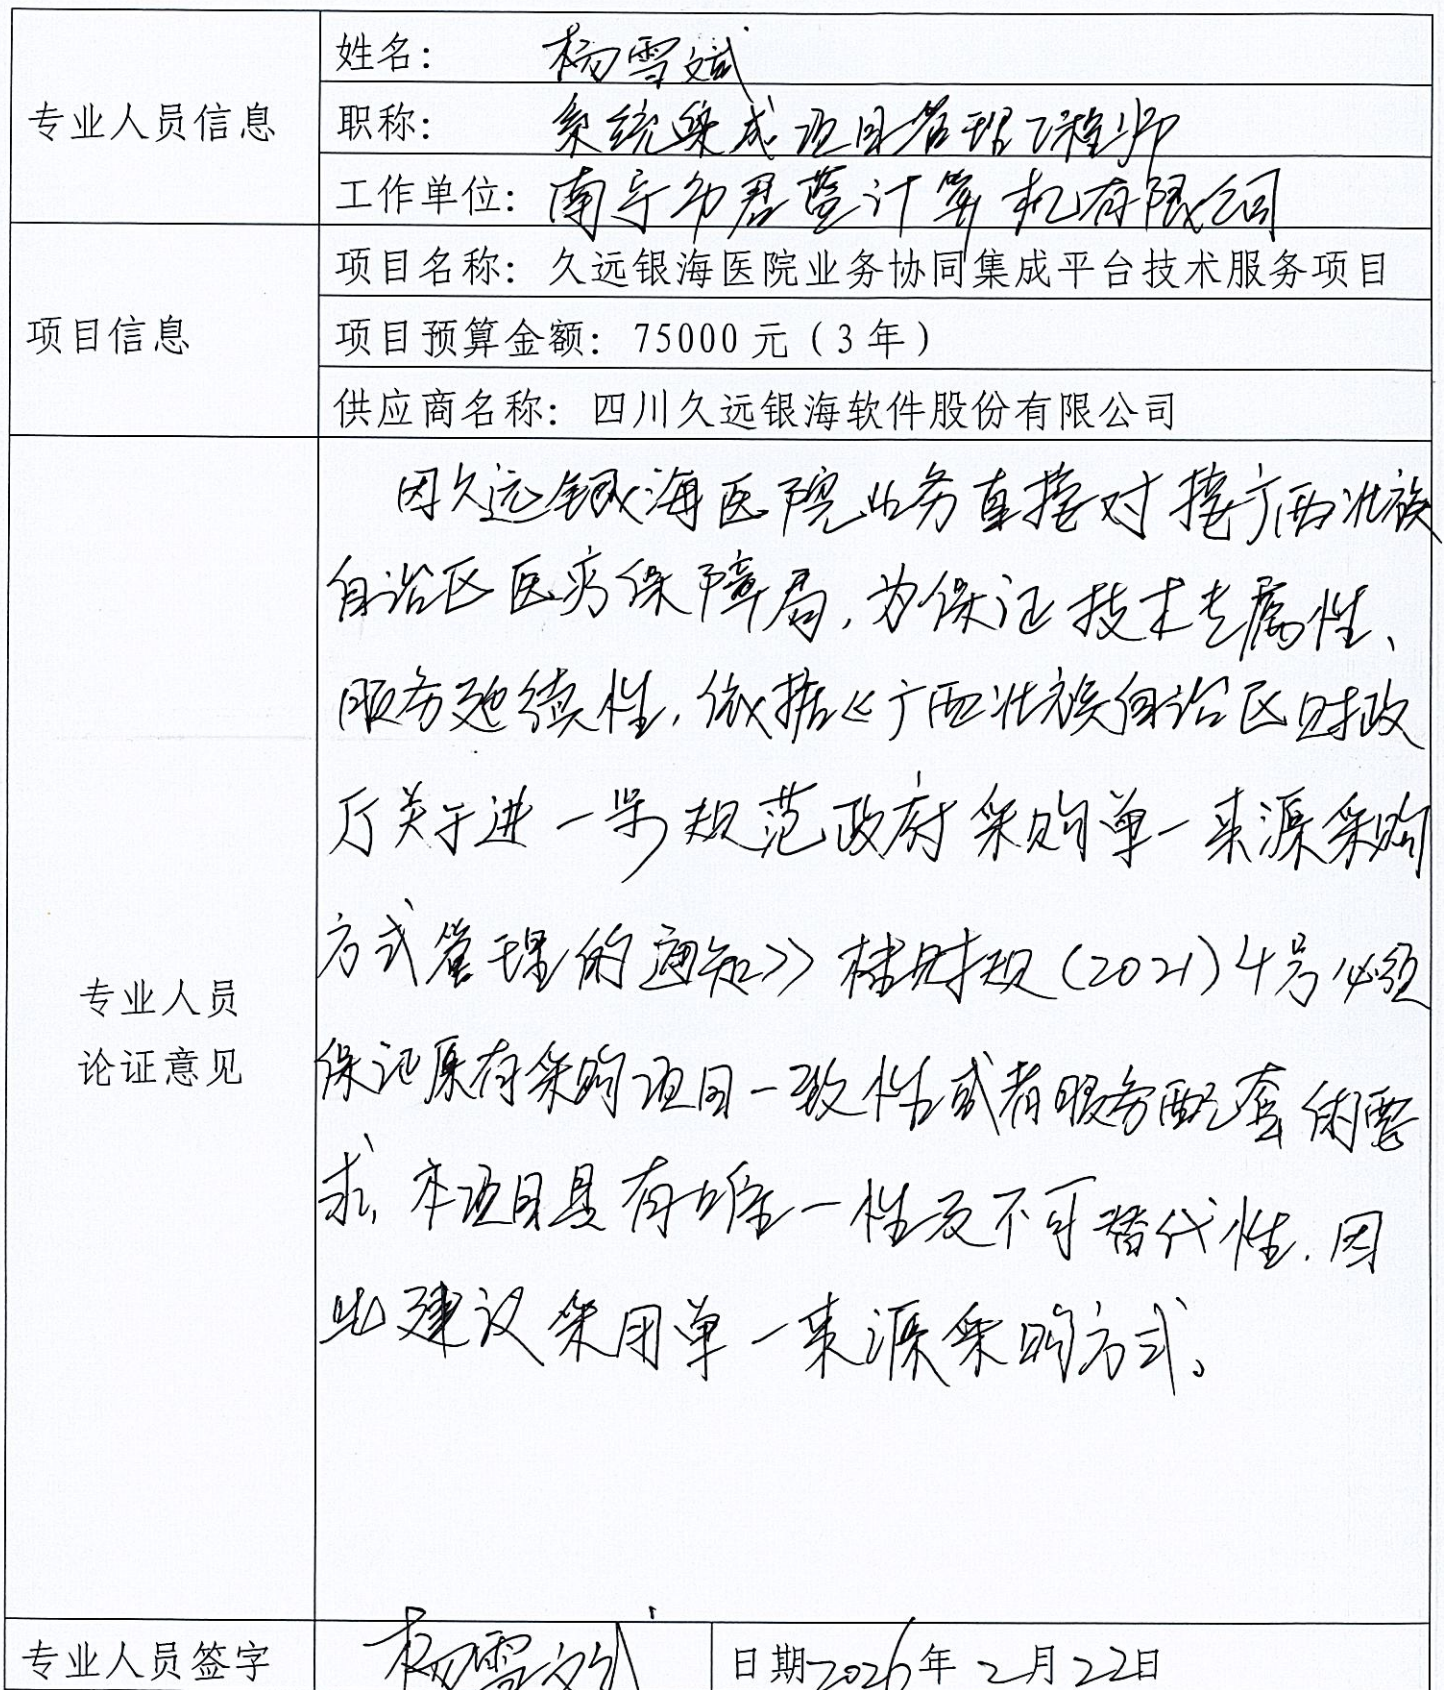 专业人员信息
姓名： 杨雪斌
职称： 系统集成项目管理工程师
工作单位：南宁市君蓝计算机有限公司
项目信息
项目名称：久远银海医院业务协同集成平台技术服务项目
项目预算金额：75000元（3年）
供应商名称：四川久远银海软件股份有限公司
专业人员
论证意见
因久远银海医院业务直接对接广西壮族
自治区医疗保障局，为保证技术专属性、
服务延续性，依据《广西壮族自治区财政
厅关于进一步规范政府采购单一来源采购
方式管理的通知》桂财规（2021）4号必须
保证原有采购项目一致性或者服务配套的要
求，本项目具有唯一性及不可替代性，因
此建议采用单一来源采购方式。
专业人员签字
杨雪斌
日期 2026年2月22日